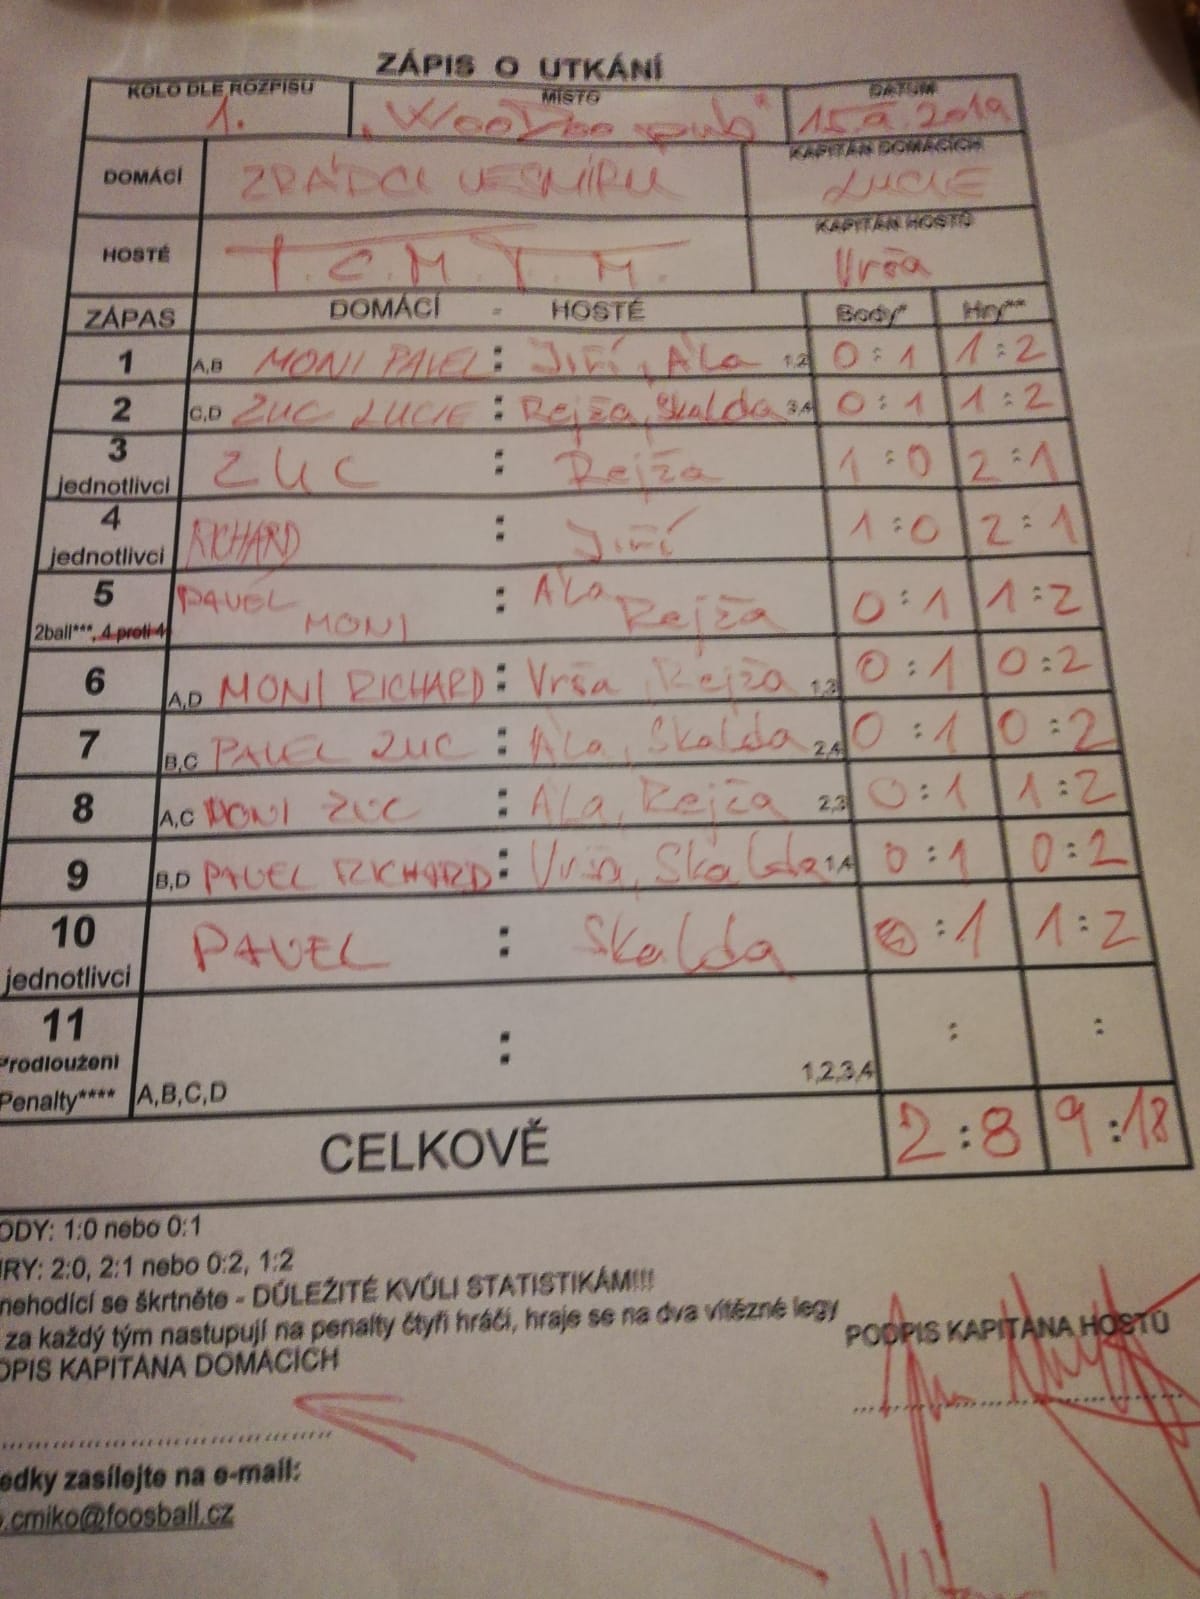 ZÁPIS O UTKÁNÍ
KOLO DLE ROZPISU MÍSTO DATUM
1. „WooDoo pub" 2019
DOMÁCÍ ZRÁDCI VESMÍRU KAPITÁN DOMÁCÍCH LUCIE
HOSTÉ T.C.M.T.M. KAPITÁN HOSTŮ Vrša
ZÁPAS DOMÁCÍ - HOSTÉ Body* Hry**
1 A,B MONI PAVEL : Jiří, Ála 1,2 0:1 1:2
2 C,D ZUC LUCIE : Rejža, Skalda 3,4 0:1 1:2
3 jednotlivci ZUC : Rejža 1:0 2:1
4 jednotlivci RICHARD : Jiří 1:0 2:1
5 2ball***, 4 proti 4 PAVEL MONI : Ála Rejža 0:1 1:2
6 A,D MONI RICHARD : Vrša, Rejža 1,3 0:1 0:2
7 B,C PAVEL ZUC : Ála, Skalda 2,4 0:1 0:2
8 A,C MONI ZUC : Ála, Rejža 2,3 0:1 1:2
9 B,D PAVEL RICHARD : Vrša, Skalda 1,4 0:1 0:2
10 jednotlivci PAVEL : Skalda 0:1 1:2
11 Prodloužení Penalty**** A,B,C,D : 1,2,3,4 : :
CELKOVĚ 2:8 9:18
ODY: 1:0 nebo 0:1
RY: 2:0, 2:1 nebo 0:2, 1:2
nehodící se škrtněte - DŮLEŽITÉ KVŮLI STATISTIKÁM!!!
za každý tým nastupují na penalty čtyři hráči, hraje se na dva vítězné legy
DPIS KAPITÁNA DOMÁCÍCH PODPIS KAPITÁNA HOSTŮ
edky zasílejte na e-mail:
.cmiko@foosball.cz